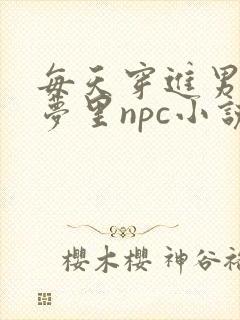 每天穿進男
夢里npc小說
櫻木櫻 神谷裕